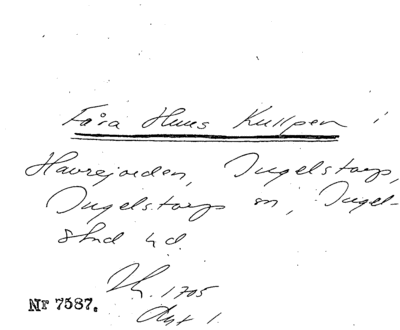 Fåra Huus Kullpen i
Havrejorden, Ingelstorps,
Ingelstorps sn, Ingel-
stad hd.
1705
Akt 1.
Nr 7587.